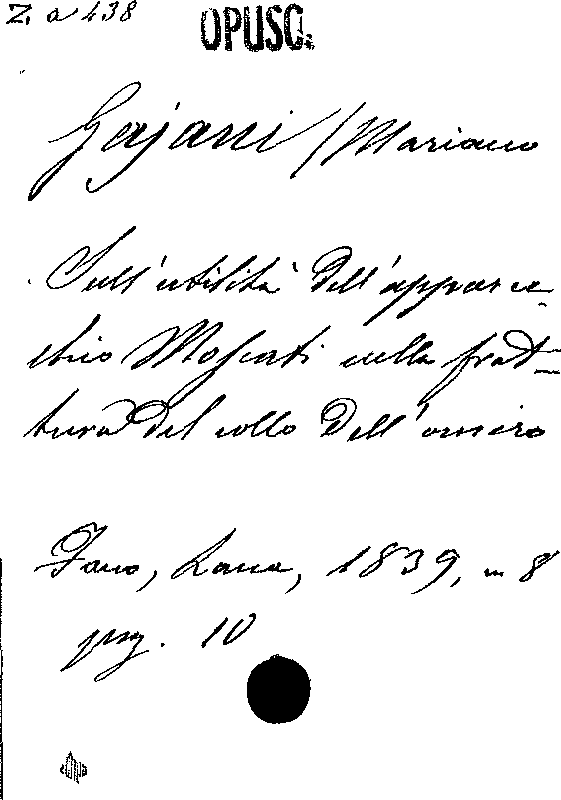 Z. a 438
OPUSC.
Gajani / Mariano
Sull'utilità dell'apparec-
chio Moscati nella frat-
tura del collo dell'omero
Fano, Lana, 1839, in 8
pag. 10